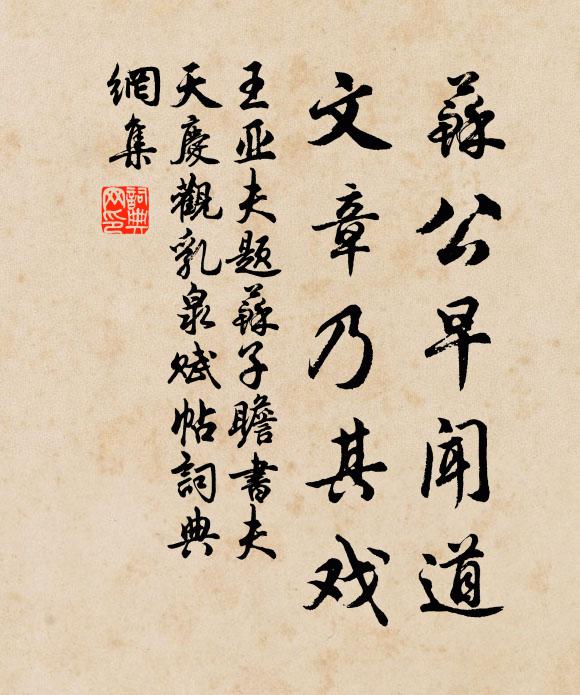 蘇公早聞道
文章乃其戏
王亚夫题蘇子瞻書夫
天慶觀乳泉赋帖詞典
網集
詞典
网印